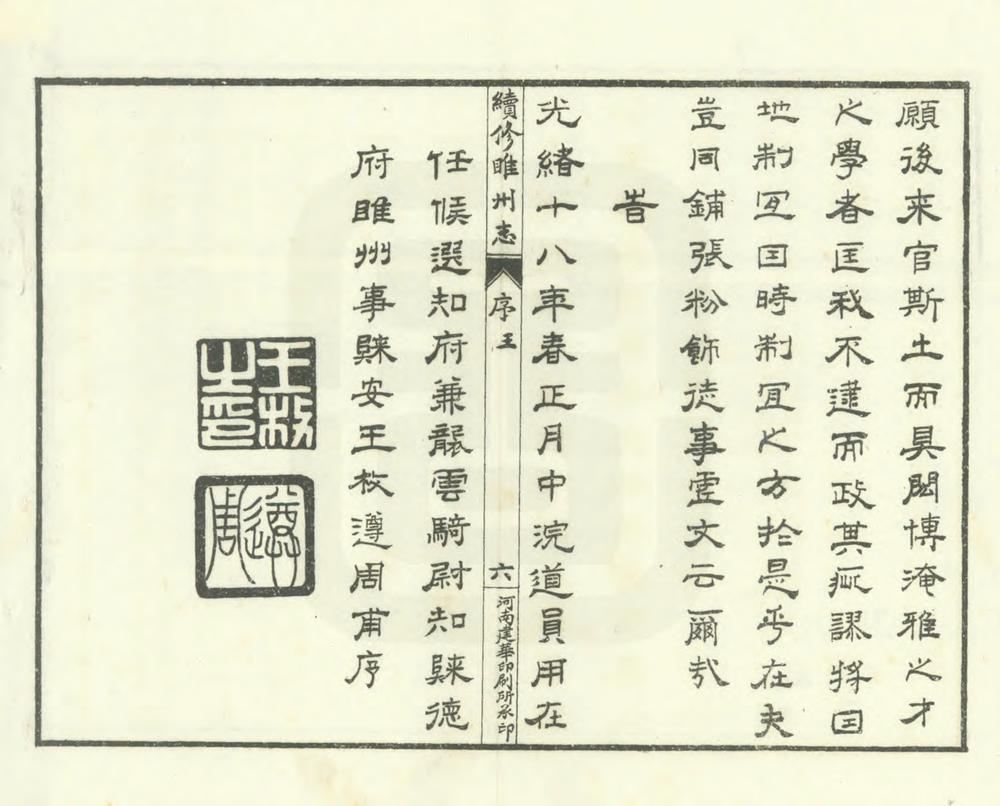 願後來官斯土而具閎博淹雅之才
之學者匡我不逮而政其疵謬將因
地制宜因時制宜之方於是乎在夫
豈同鋪張粉飾徒事虛文云爾哉
旹
光緒十八年春正月中浣道員用在
續修睢州志 序王 六 河南建華印刷所承印
任候選知府兼襲雲騎尉知歸德
府睢州事歸安王枚遵周甫序
王枚之印
遵周